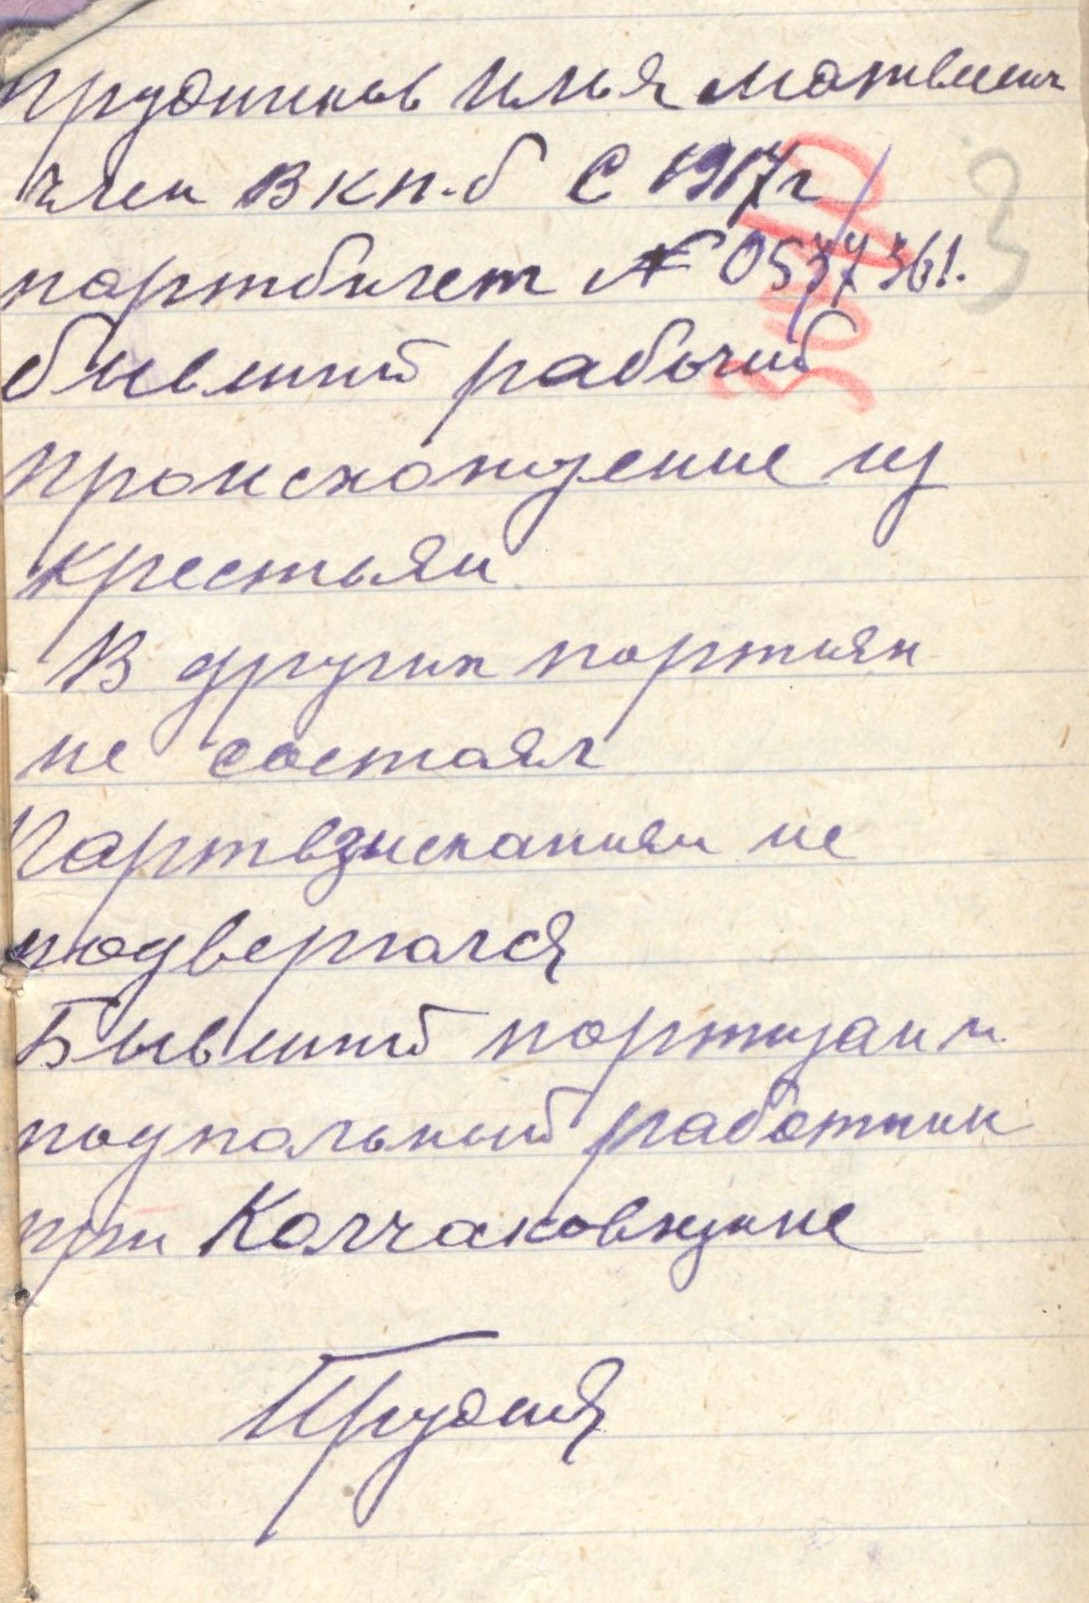 Прудников Илья Матвеевич
член ВКП-б С 1917г
партбилет № 0537361.
бывший рабочий
происхождение из
крестьян
В других партиях
не состоял
Партвзысканиям не
подвергался
Бывший партизан и
подпольный работник
при Колчаковщине
3